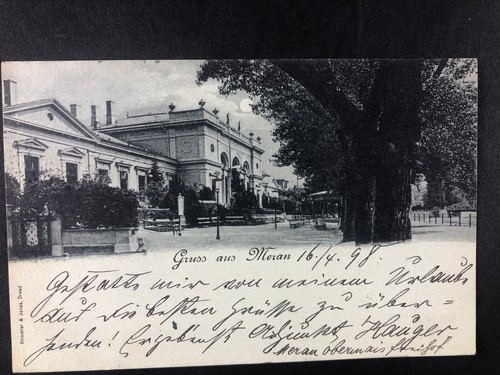 Gruss aus Meran 16/4. 98.
Gestatte mir von meinem Urlaube
auf die besten Grüße zu über-
senden! Ergebenst Adjunkt Hauger
Meran obermais
Stengel & Dresd